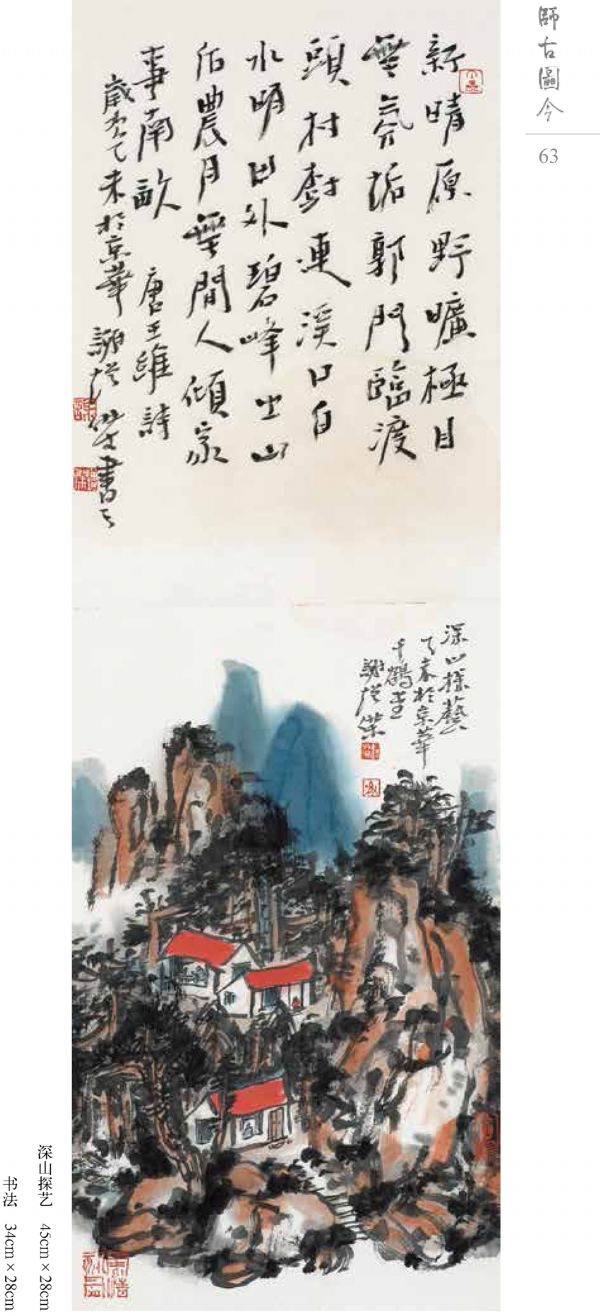 師古圖今
63
新晴原野曠極目
無氛垢郭門臨渡
頭村樹連溪口白
水明田外碧峰出山
后農月無間人傾家
事南畝 唐王維詩
歲在乙未於京華 謝從榮書之
深山探藝
乙未於京華
千鶴堂
謝從榮
深山探艺 45cm×28cm
书法 34cm×28cm